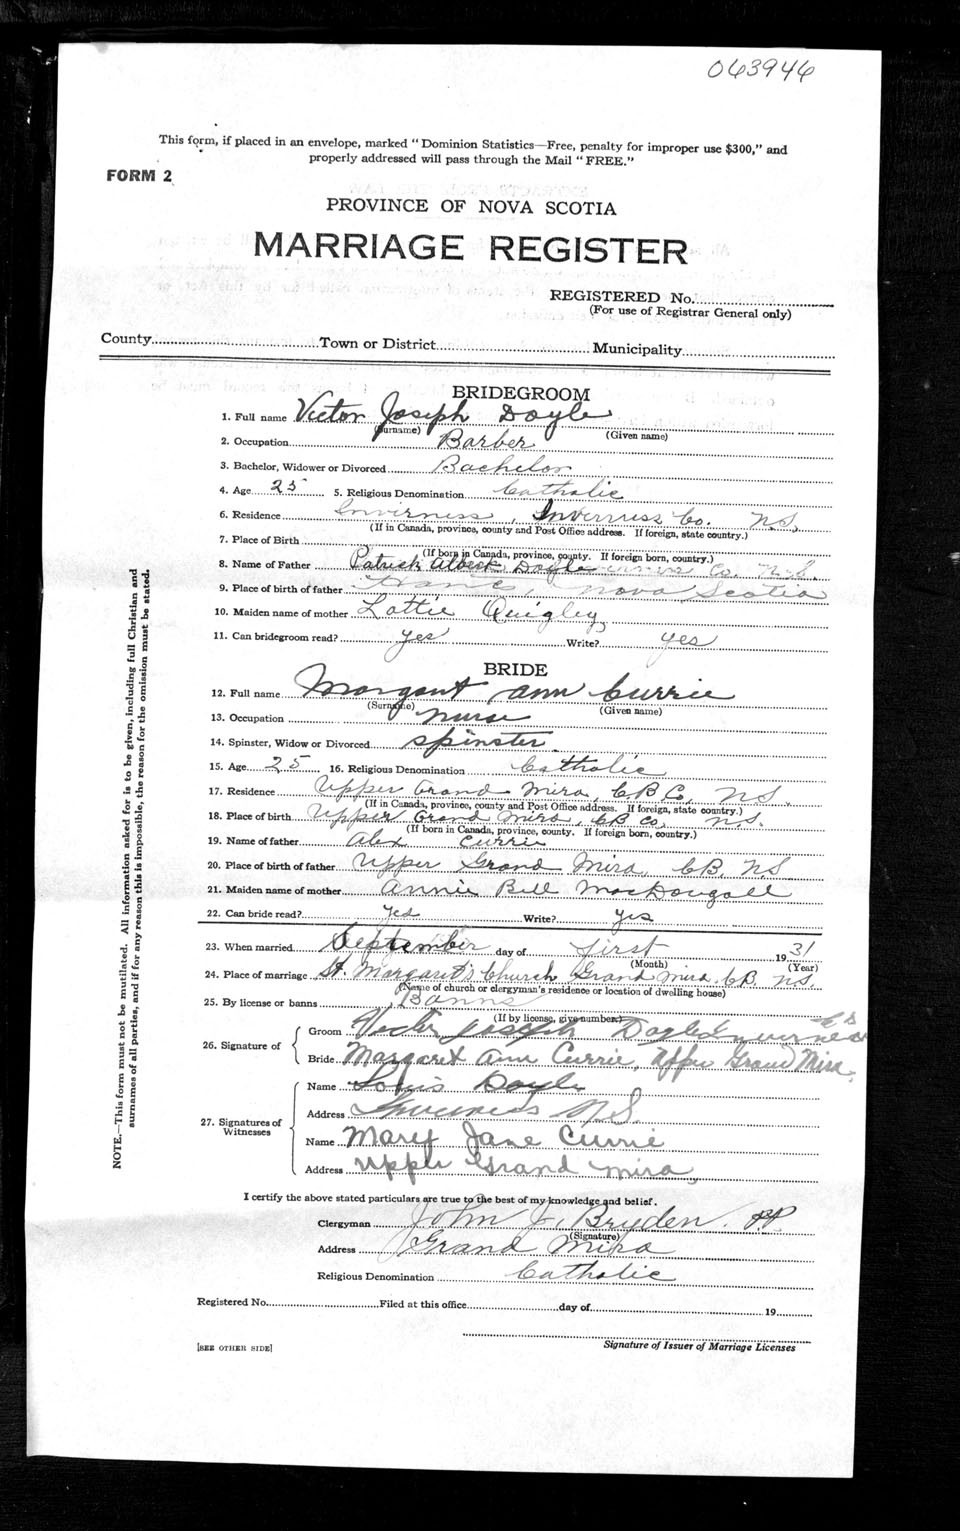 063946
This form, if placed in an envelope, marked "Dominion Statistics—Free, penalty for improper use $300," and
properly addressed will pass through the Mail "FREE."
FORM 2
PROVINCE OF NOVA SCOTIA
MARRIAGE REGISTER
REGISTERED No.
(For use of Registrar General only)
County Town or District Municipality
BRIDEGROOM
1. Full name Victor Joseph Doyle
(Surname) (Given name)
2. Occupation Barber
3. Bachelor, Widower or Divorced Bachelor
4. Age 25 5. Religious Denomination Catholic
6. Residence Inverness, Inverness Co. N.S.
(If in Canada, province, county and Post Office address. If foreign, state country.)
7. Place of Birth
(If born in Canada, province, county. If foreign born, country.)
8. Name of Father Patrick Albert Doyle Co. N.S.
9. Place of birth of father Nova Scotia
10. Maiden name of mother Lottie Quigley
11. Can bridegroom read? yes Write? yes
BRIDE
12. Full name Margaret Ann Currie
(Surname) (Given name)
13. Occupation nurse
14. Spinster, Widow or Divorced Spinster
15. Age 25 16. Religious Denomination Catholic
17. Residence Upper Grand Mira, C.B. Co., N.S.
(If in Canada, province, county and Post Office address. If foreign, state country.)
18. Place of birth Upper Grand Mira, C.B. Co, N.S.
(If born in Canada, province, county. If foreign born, country.)
19. Name of father Alex Currie
20. Place of birth of father Upper Grand Mira, C.B. N.S
21. Maiden name of mother Annie Bell MacDougall
22. Can bride read? yes Write? yes
23. When married September day of first 1931
(Month) (Year)
24. Place of marriage St. Margaret's Church Grand Mira, C.B. N.S.
(Name of church or clergyman's residence or location of dwelling house)
25. By license or banns Banns
(If by license, give number)
26. Signature of Groom Victor Joseph Doyle Inverness
Bride Margaret Ann Currie, Upper Grand Mira,
27. Signatures of Witnesses Name Louis Doyle
Address Inverness N.S.
Name Mary Jane Currie
Address Upper Grand Mira,
I certify the above stated particulars are true to the best of my knowledge and belief.
Clergyman John J. Bryden. P.P.
(Signature)
Address Grand Mira
Religious Denomination Catholic
Registered No. Filed at this office day of 19
Signature of Issuer of Marriage Licenses
[SEE OTHER SIDE]
NOTE.—This form must not be mutilated. All information asked for is to be given, including full Christian and
surnames of all parties, and if for any reason this is impossible, the reason for the omission must be stated.